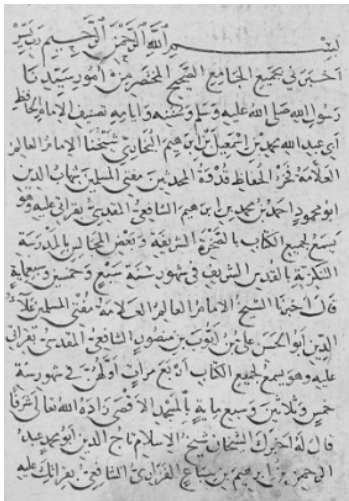 بسم الله الرحمن الرحيم رب يسر
اخبرني بجميع الجامع الصحيح المختصر من امور سيدنا
رسول الله صلى الله عليه وسلم وسننه وايامه تصنيف الامام الحافظ
ابى عبد الله محمد بن اسمعيل ابن ابرهيم البخارى شيخنا الامام العالم
العلامة فخر الحفاظ قدوة المحدثين مفتى المسلمين شهاب الدين
ابو محمود احمد بن محمد بن ابرهيم الشافعى المقدسى بقراتى عليه وهو
يسمع لجميع الكتاب بالصخرة الشريفة وبعض المجالس بالمدرسة
التنكزية بالقدس الشريف فى شهور سنة سبع وخمسين وسبعماية
قال اخبرنا الشيخ الامام العالم العلامة مفتى المسلمين علاء
الدين ابو الحسن على بن ايوب بن منصور الشافعى المقدسى بقراتى
عليه وهو يسمع لجميع الكتاب اربع مرات اولهن فى شهور سنة
خمس وثلاثين وسبع ماية بالمسجد الاقصى زاده الله تعالى شرفا
قال له اخبرك الشيخان شيخ الاسلام تاج الدين ابو محمد عبد
الرحمن بن ابرهيم بن سباع الفزارى الشافعى بقراتك عليه